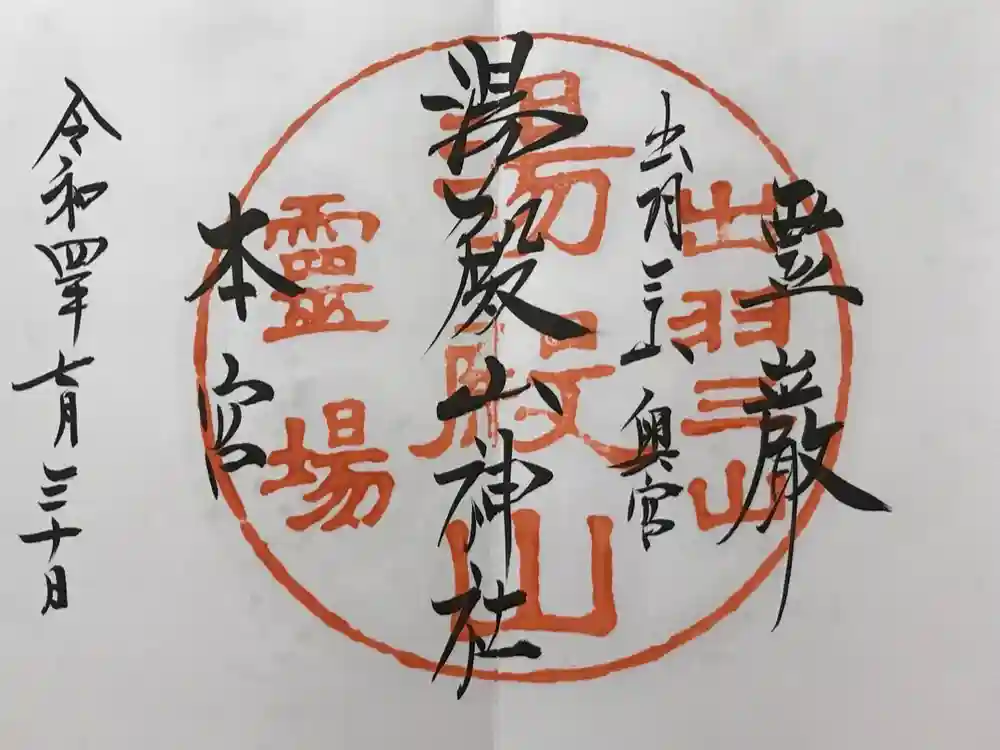 霊巌
出羽三山 奥宮
湯殿山神社
本宮
令和四年七月三十日
出羽三山
湯殿山
靈場